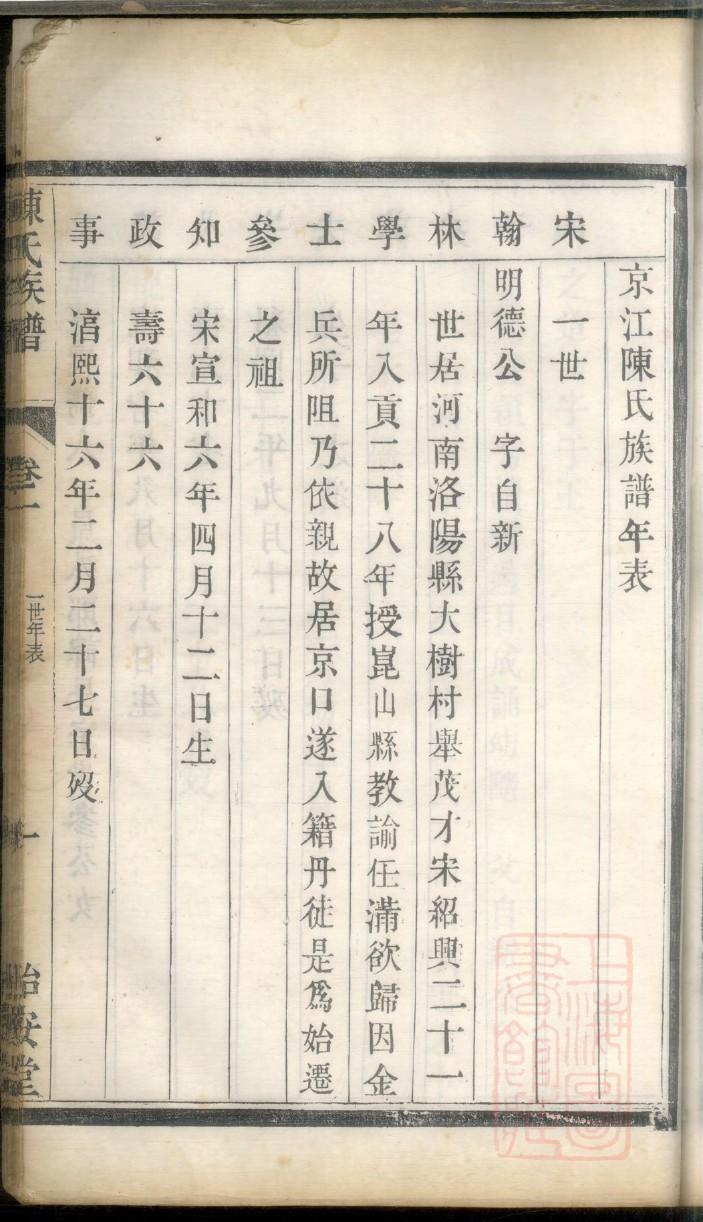 京江陳氏族譜年表
宋 一世
翰 明德公 字自新
林 世居河南洛陽縣大樹村舉茂才宋紹興二十一
學 年入貢二十八年授崑山縣教諭任滿欲歸因金
士 兵所阻乃依親故居京口遂入籍丹徒是爲始遷
參 之祖
知 宋宣和六年四月十二日生
政 壽六十六
事 淳熙十六年二月二十七日歿
陳氏族譜 卷一 一世年表 一 怡安堂
上海圖書館藏